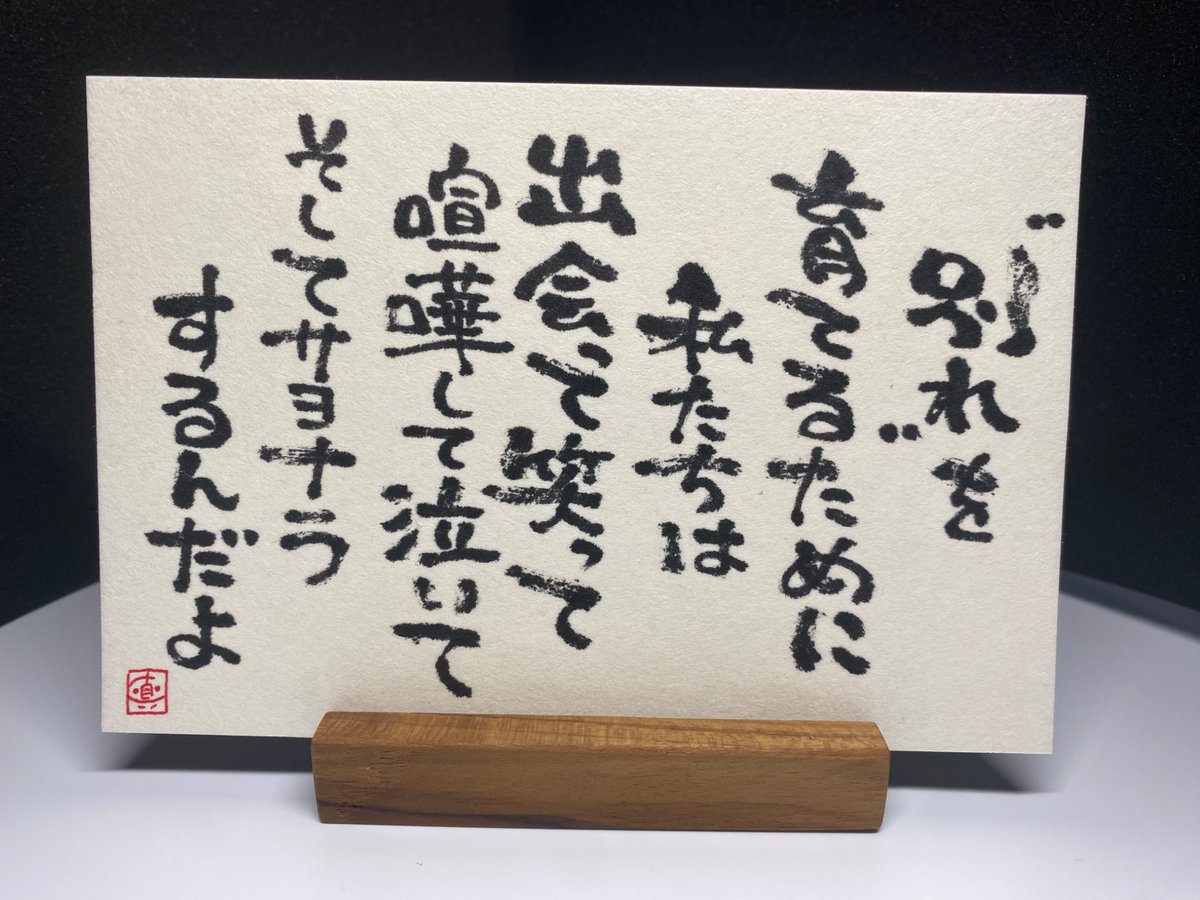 〝別れ〟を
育てるために
私たちは
出会って笑って
喧嘩して泣いて
そしてサヨナラ
するんだよ
真